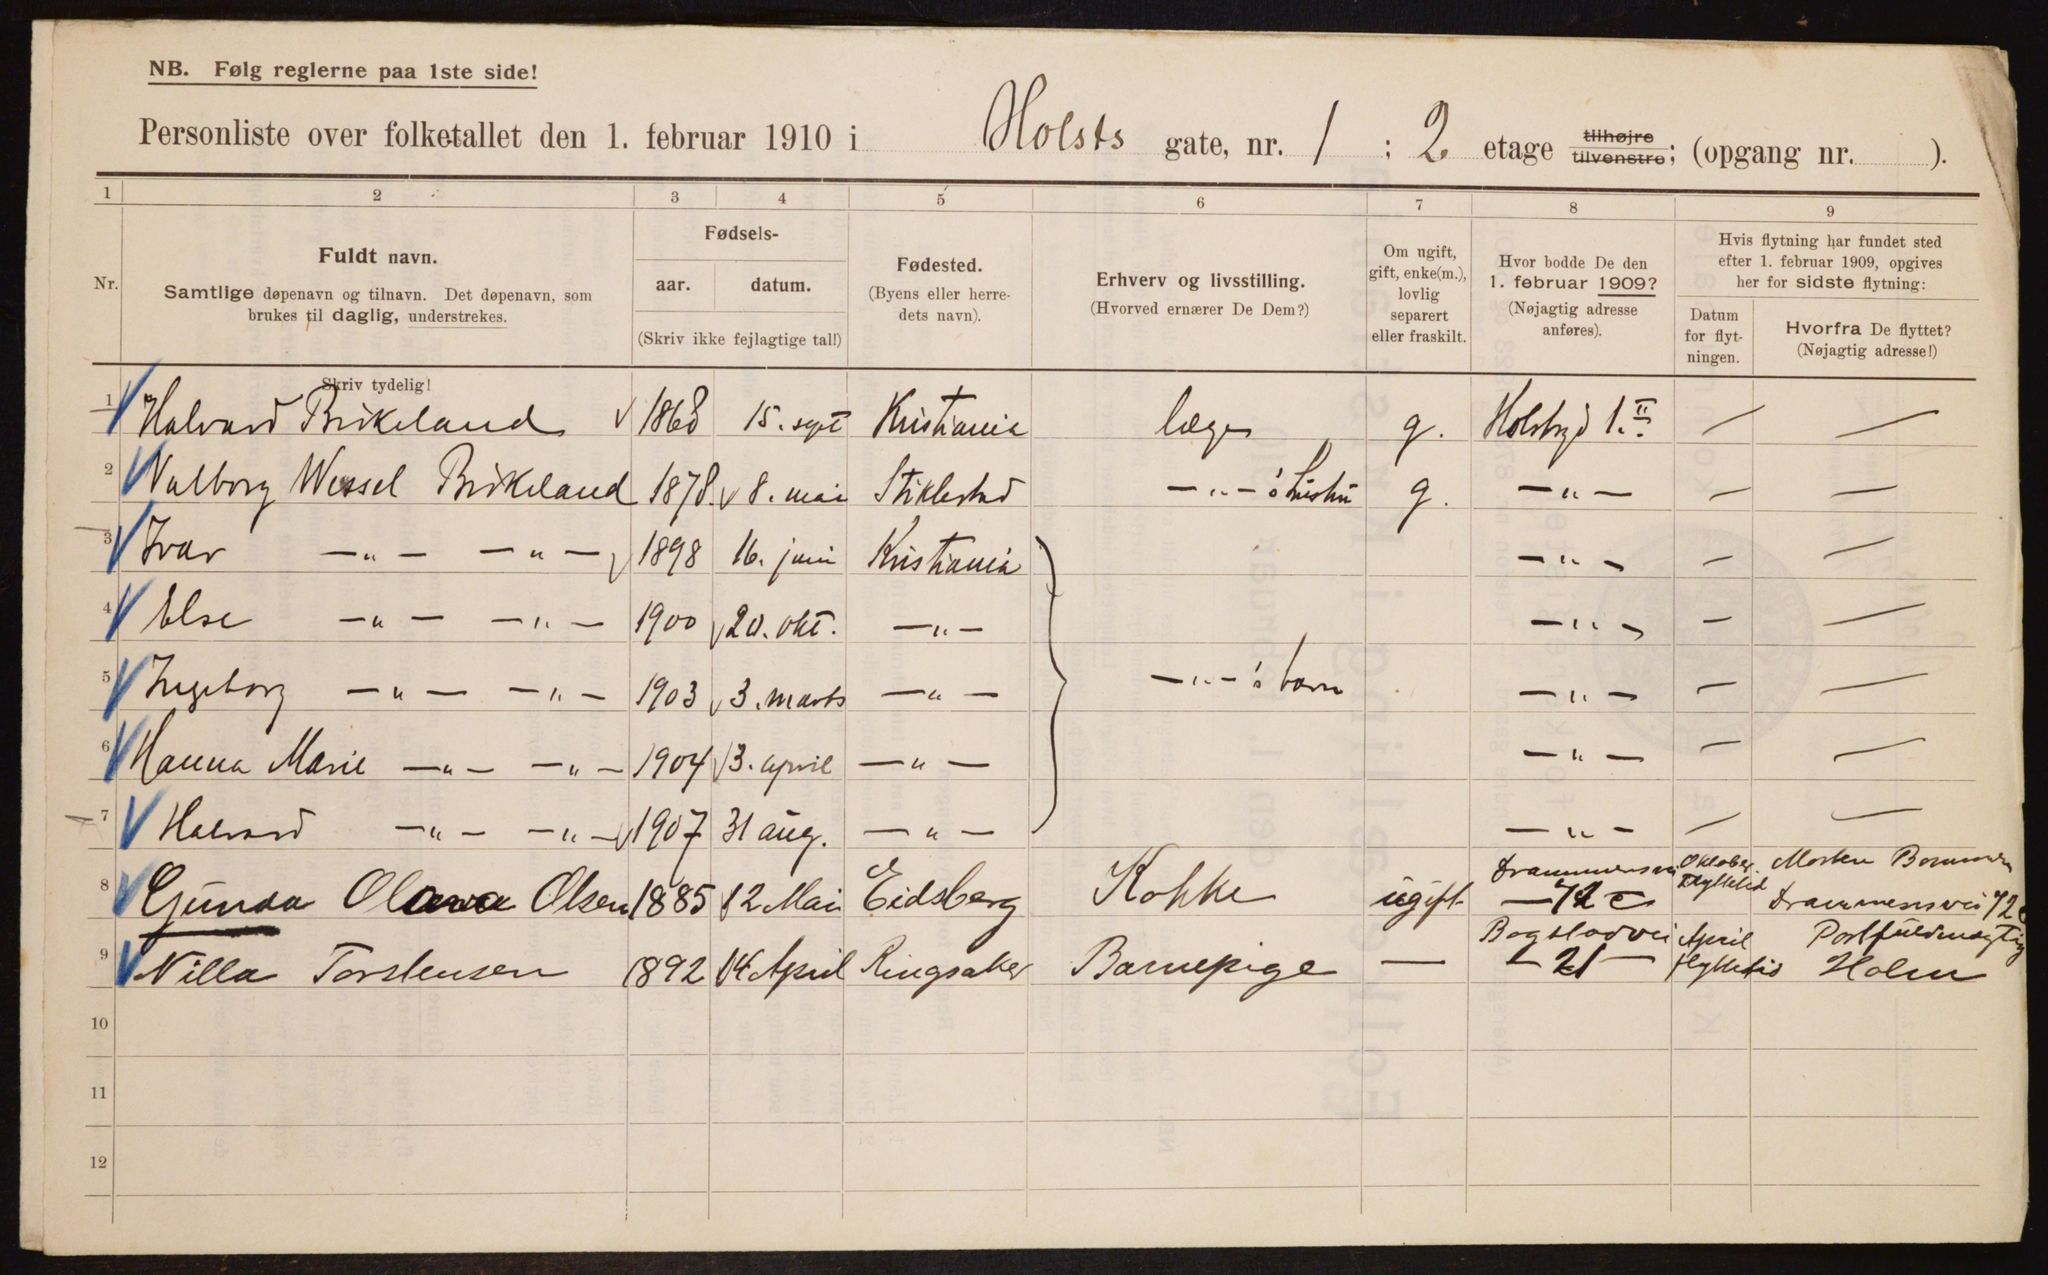 NB. Følg reglerne paa 1ste side!
Personliste over folketallet den 1. februar 1910 i Holsts gate, nr. 1 ; 2 etage tilhøjre tilvenstre; (opgang nr. ).
1 2 3 4 5 6 7 8 9
Nr.
Fuldt navn.
Samtlige døpenavn og tilnavn. Det døpenavn, som
brukes til daglig, understrekes.
Skriv tydelig!
Fødsels-
aar. datum.
(Skriv ikke fejlagtige tal!)
Fødested.
(Byens eller herre-
dets navn).
Erhverv og livsstilling.
(Hvorved ernærer De Dem?)
Om ugift,
gift, enke(m.),
lovlig
separert
eller fraskilt.
Hvor bodde De den
1. februar 1909?
(Nøjagtig adresse
anføres).
Hvis flytning har fundet sted
efter 1. februar 1909, opgives
her for sidste flytning:
Datum
for flyt-
ningen.
Hvorfra De flyttet?
(Nøjagtig adresse!)
1 Halvard Birkeland 1868 15. sept Kristiania læge g. Holstsgd 1. II — —
2 Valborg Wessel Birkeland 1878 8. mai Stiklestad —„—s hustru g. —„— — —
3 Ivar —„— —„— 1898 16. juni Kristiania —„— — —
4 Else —„— —„— 1900 20. okt. —„— —„— — —
5 Ingeborg —„— —„— 1903 3. marts —„— —„—s barn —„— — —
6 Hanna Marie —„— —„— 1904 3. april —„— —„— — —
7 Halvard —„— —„— 1907 31 aug. —„— —„— — —
8 Gunda Olava Olsen 1885 12 Mai Eidsberg Kokke ugift Drammensvei 72 c Oktober Flyttetid Morten Drammensvei 72 c
9 Nilla Torstensen 1892 14 April Ringsaker Barnepige — Bogstadvei 21 April flyttetid Holm
10
11
12